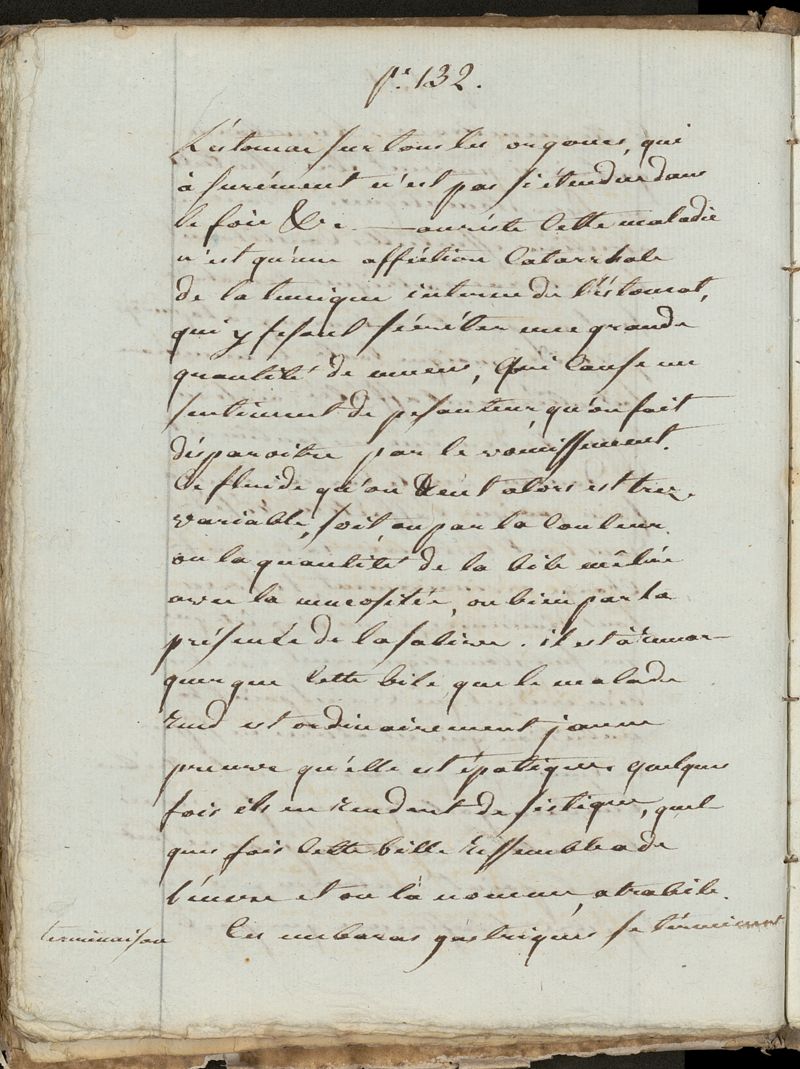 pe. 132.
L'estomac sur tous les organes, qui
à surément n'est pas si étendue dans
le foie &c. — au reste cette maladie
n'est qu'une affection Catarrhale
de la tunique interne de l'éstomat,
qui y fesant sécréter une grande
quantité de mucus, Qui Cause un
sentiment de pesanteur qu'on fait
disparoitre par le vomissement.
Le fluide qu'on rend alors est tres
variable, soit ou par la Couleur
ou la quantité de la bile mêlée
avec la mucositée, ou bien par la
présence de la salive. il est à remar-
quer que Cette bile que le malade
rend est ordinairement jaune
preuve qu'elle est épatique, quelque
fois ils en rendent de sistique, quel-
ques fois Cette bille ressemble a de
l'encre et on la nomme atrabile.
terminaison Les embaras gastriques se terminent